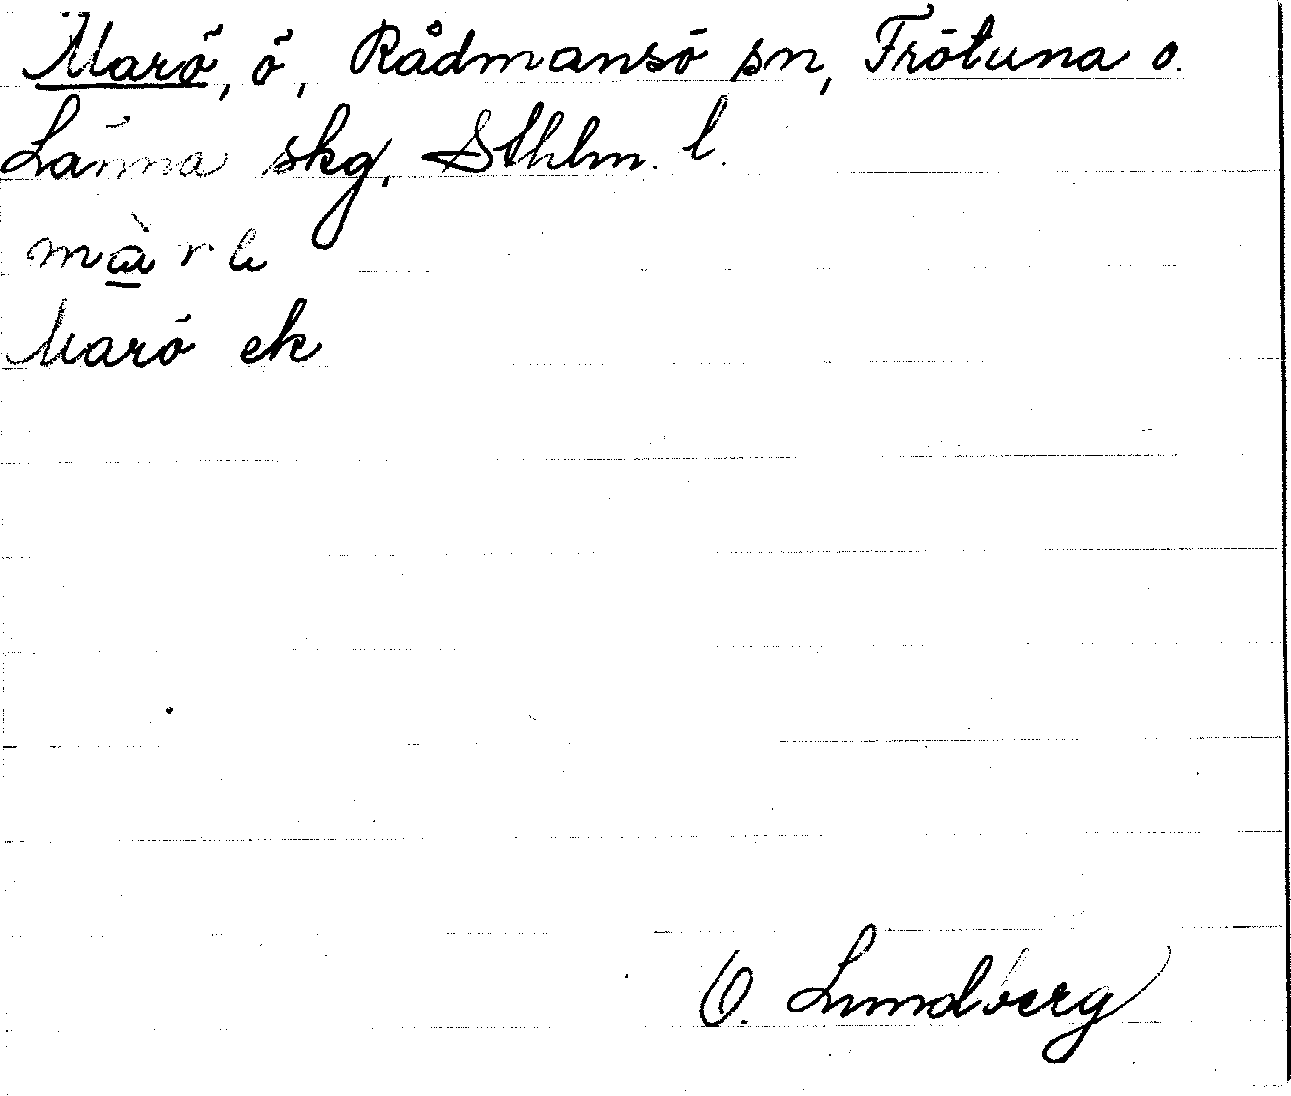 Marö, ö, Rådmansö sn, Frötuna o.
Länna skg, Sthlm. l.
Marö ek
O. Lundberg